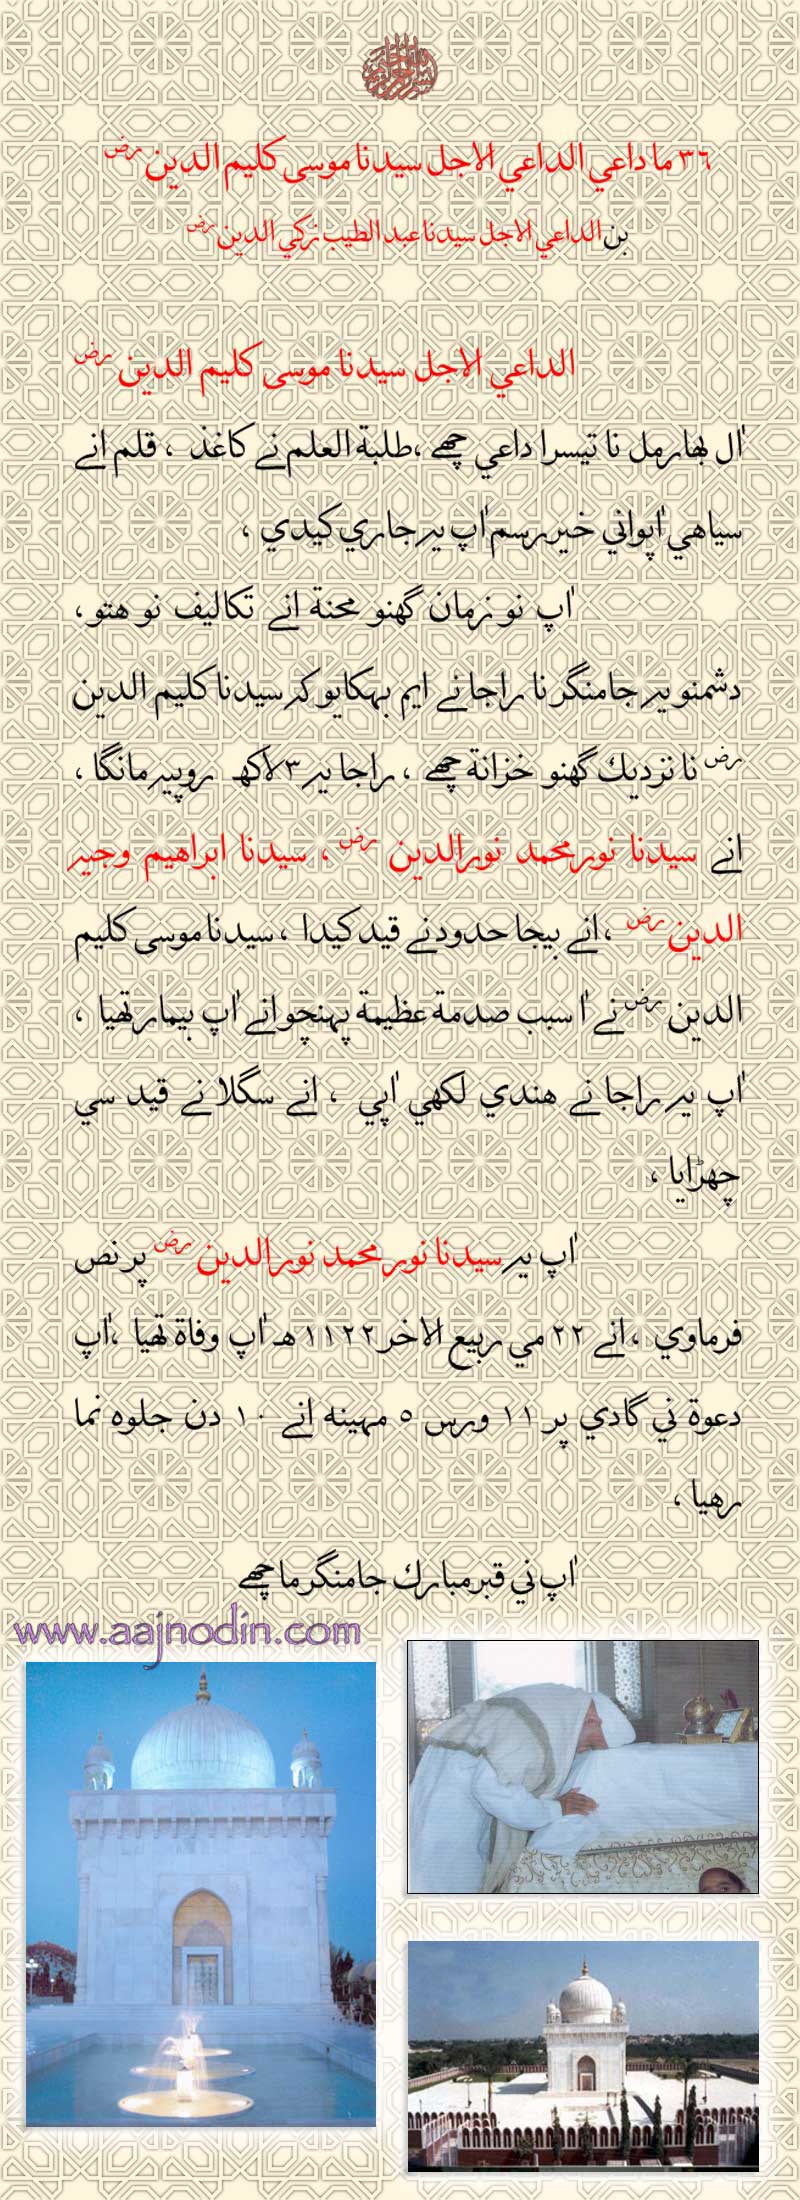 ٣٦ ما داعي الداعي الاجل سيدنا موسى كليم الدين رض
بن الداعي الاجل سيدنا عبد الطيب زكي الدين رض
الداعي الاجل سيدنا موسى كليم الدين رض
اٰل بھارمل نا تيسرا داعي چھے ، طلبة العلم نے كاغذ ، قلم انے
سياهي اٰپواني خير رسم اٰپ یہ جاري كيدي ،
اٰپ نو زمان گھنو محنة انے تكاليف نو هتو ،
دشمنو یہ جامنگر نا راجا نے ایم بہکایو کہ سيدنا كليم الدين
رض نا نزديك گھنو خزانة چھے ، راجا یہ ٣ لاکھ روپیہ مانگا ،
انے سيدنا نور محمد نور الدين رض ، سيدنا ابراهيم وجيه
الدين رض ، انے بيجا حدود نے قيد كيدا ، سيدنا موسى كليم
الدين رض نے اٰ سبب صدمة عظيمة پهنچو انے اٰپ بيمار تھيا ،
اٰپ یہ راجا نے هندي لكھي اٰپي ، انے سگلا نے قيد سي
چھڑایا ،
اٰپ یہ سيدنا نور محمد نور الدين رض پر نص
فرماوي ، انے ٢٢ مي ربيع الاخر ١١٢٢ هـ اٰپ وفاة تھيا ، اٰپ
دعوة ني گادي پر ١١ ورس ٥ مهينه انے ١٠ دن جلوه نما
رهيا ،
اٰپ ني قبر مبارك جامنگر ما چھے
www.aajnodin.com